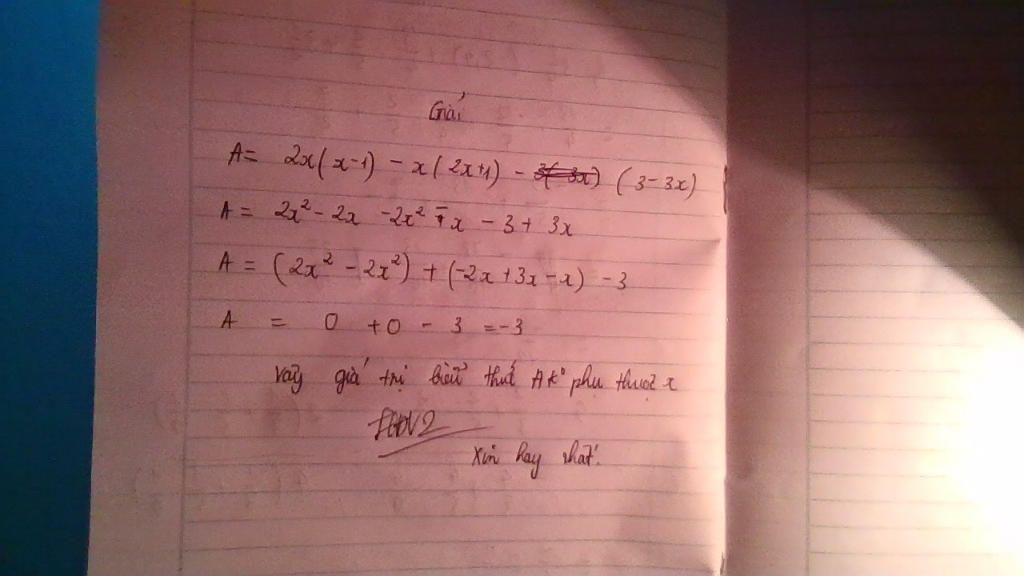 Giải
A = 2x(x-1) - x(2x+1) - (3-3x)
A = 2x² - 2x - 2x² - x - 3 + 3x
A = (2x² - 2x²) + (-2x + 3x - x) - 3
A = 0 + 0 - 3 = -3
Vậy giá trị biểu thức A k° phụ thuộc x
Xin hay nhất.